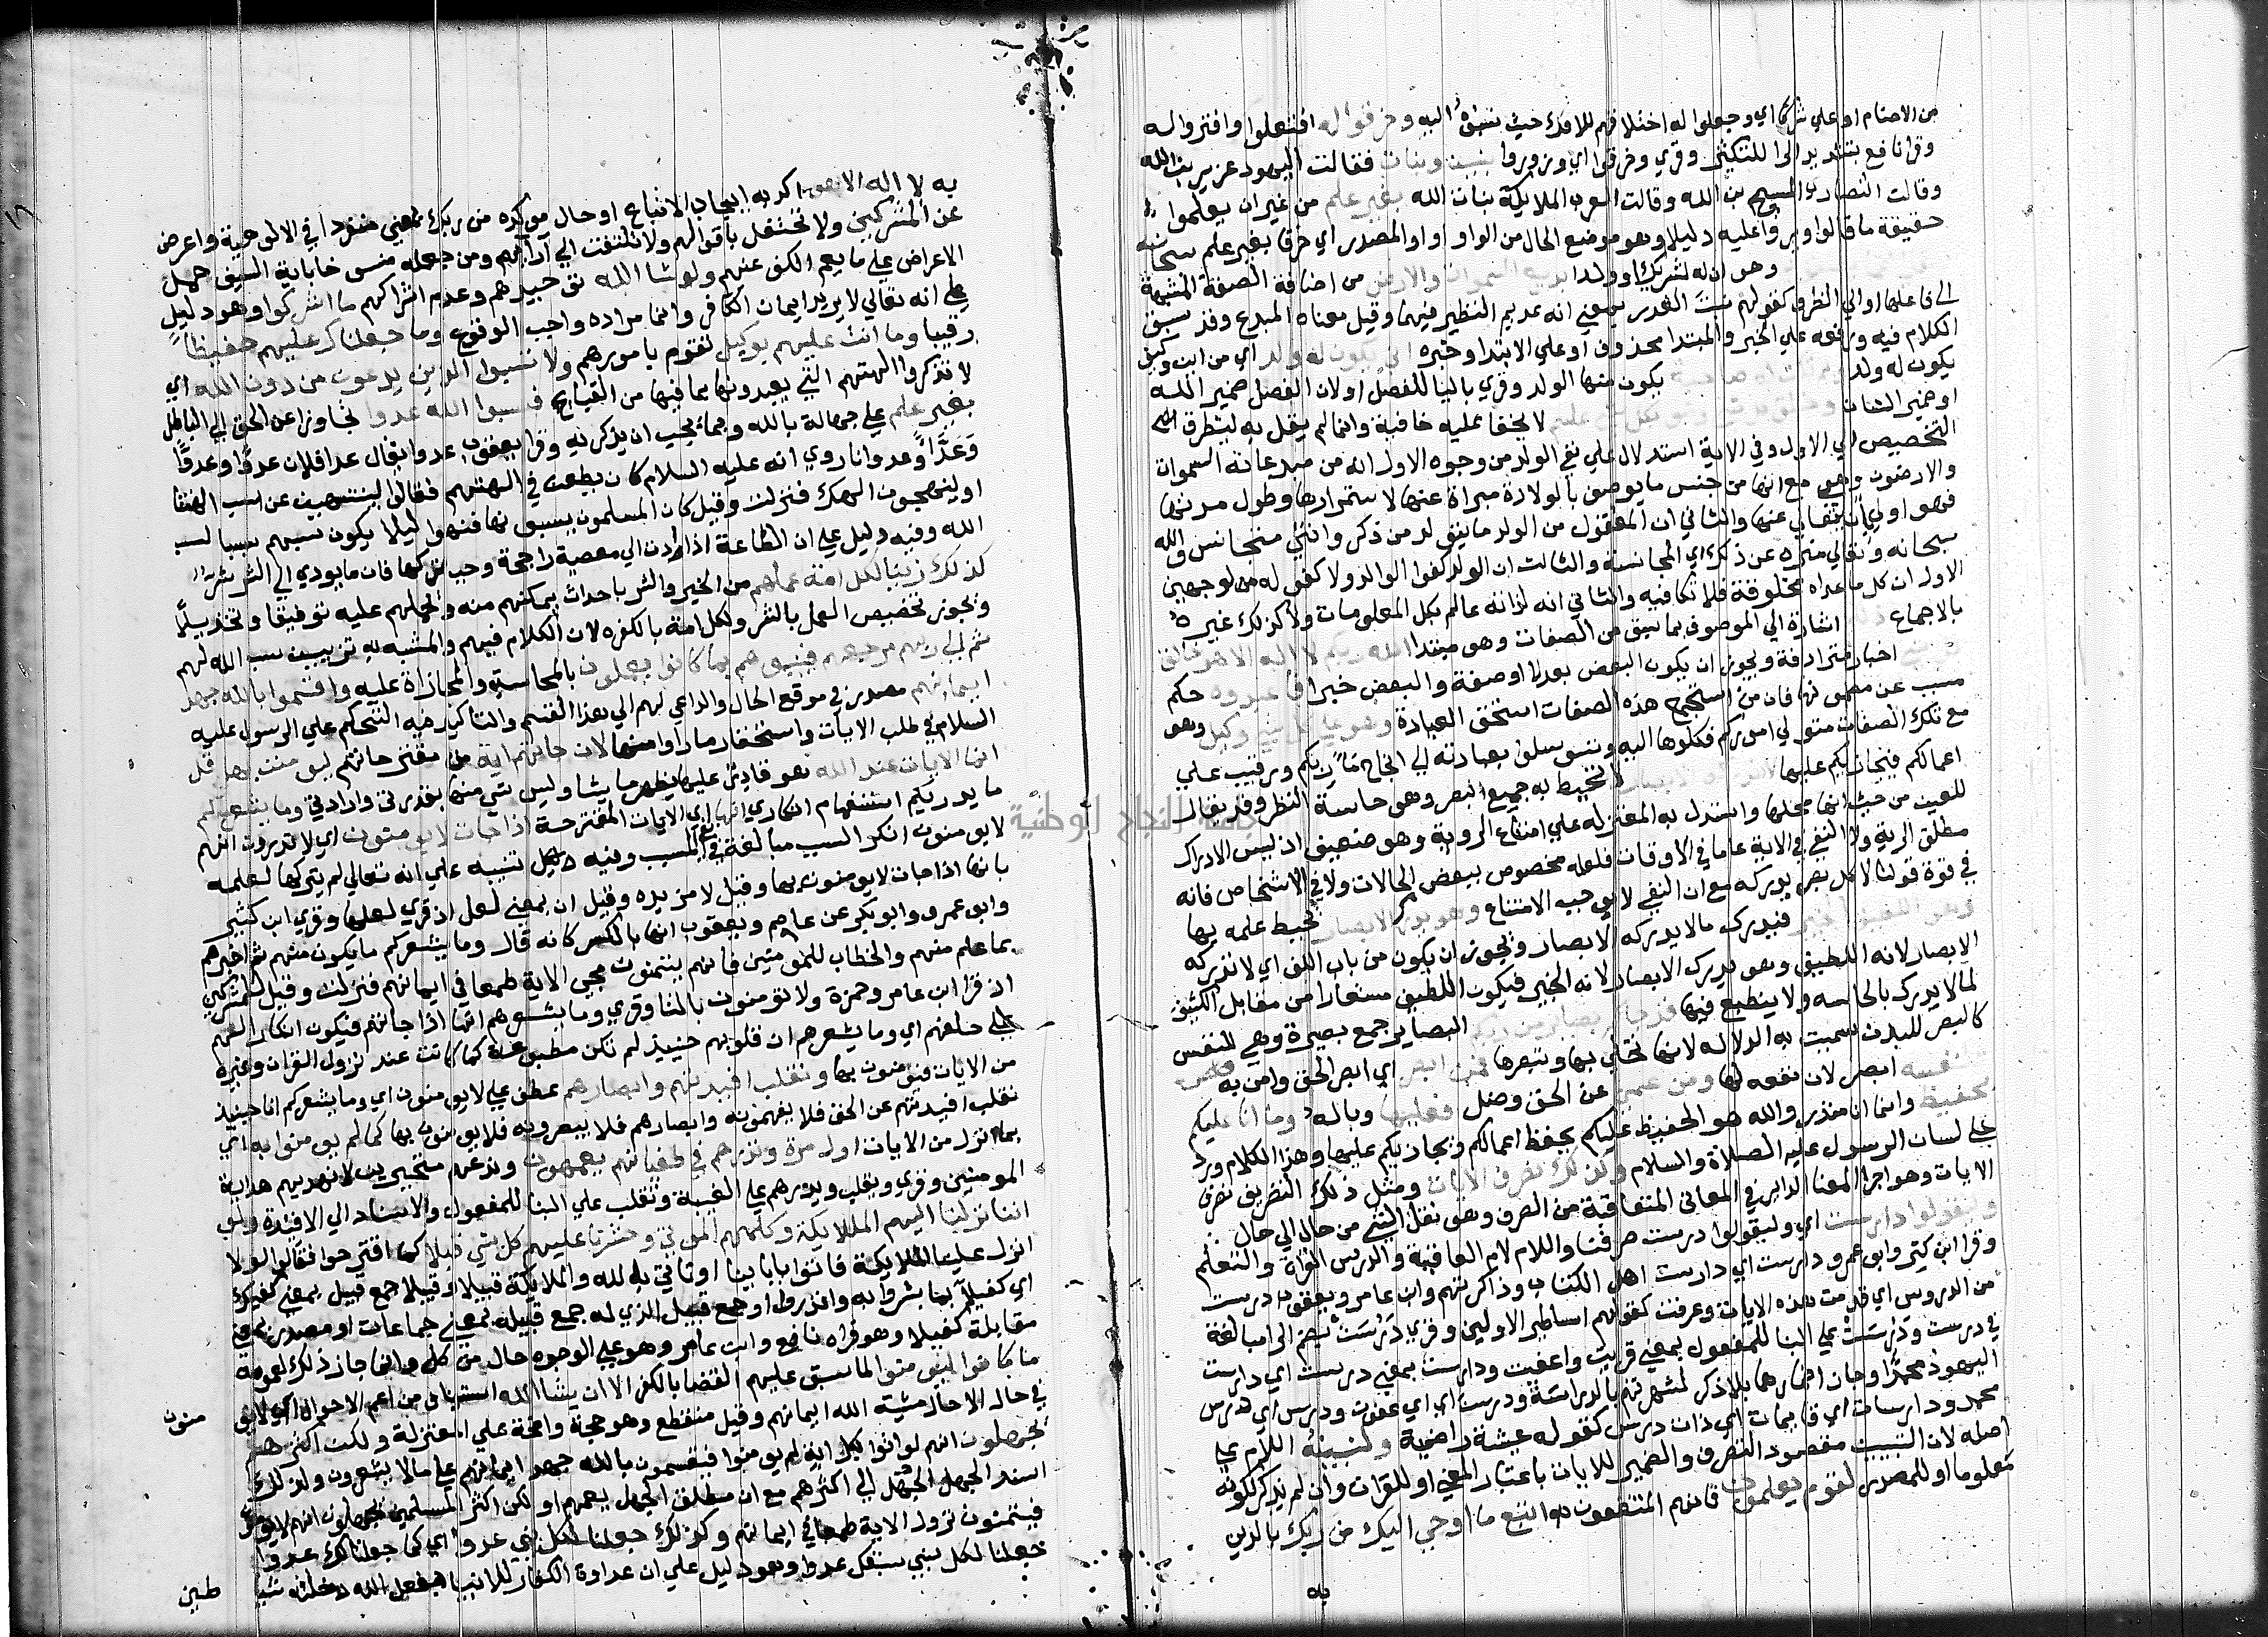 من الاصنام او علي شركا اي وجعلوا له اختلافهم للافك حيث نسبوه اليه وخرقوا له افتعلوا وافتروا له
وقرا نافع بتشديد الرا للتكثير وقري وحرفوا اي وزوروا بنين وبنات فقالت اليهود عزير بن الله
وقالت النصاري المسيح بن الله وقالت العرب الملايكة بنات الله بغير علم من غير ان يعلموا
حقيقة ما قالوا ويروا عليه دليلا وهو موضع الحال من الواو او المصدر اي خرقا بغير علم سبحانه
وهو ان له شريكا وولدا بديع السموات والارض من اضافة الصفة المشبهة
الي فاعلها او الي الظرف كقولهم ثبت الغدر بمعني انه عديم النظير فيهما وقيل معناه المبدع وقد سبق
الكلام فيه ورفعه علي الخبر والمبتدا محذوف او علي الابتدا وخبره اني يكون له ولد اي من اين وكيف
يكون له ولد ولم تكن له صاحبة يكون منها الولد وقري باليا للفصل او لان الفصل ضمير الله
او ضمير الشان وخلق كل شي وهو بكل شي عليم لا يخفا عليه خافية وانما لم يقل به لتطرق
التخصيص الي الاول وفي الاية استدلال علي نفي الولد من وجوه الاول انه من مبدعاته السموات
والارضون وهي مع انها من جنس ما يوصف بالولادة مبراة عنها لاستمرارها وطول مدتها
فهو اولي بان يتعالي عنها والثاني ان المعقول من الولد ما يتولد من ذكر وانثي متجانسين والله
سبحانه وتعالي منزه عن ذلك اي المجانسة والثالث ان الولد كفوا الوالد ولا كفو له من لوجهين
الاول ان كل ما عداه مخلوقة فلا تكافيه والثاني انه لذاته عالم بكل المعلومات ولا كذلك غيره
بالاجماع ذلكم اشارة الي الموصوف بما سبق من الصفات وهو مبتدا الله ربكم لا اله الا هو خالق
كل شي اخبار مترادفة ويجوز ان يكون البعض بدلا او صفة والبعض خبرا فاعبدوه حكم
مسبب عن مضمونها فان من استجمع هذه الصفات استحق العبادة وهو علي كل شي وكيل وهو
مع تلك الصفات متولي اموركم فكلوها اليه وتتوسلوا بعبادته الي انجاح مآربكم ورقيب علي
اعمالكم فيجازيكم عليها لا تدركه الابصار لا تحيط به جميع البصر وهي حاسة النظر وقد يقال
للعين من حيث انها محلها واستدل به المعتزلة علي امتناع الروية وهو ضعيف اذ ليس الادراك
مطلق الرية ولا النفي في الاية عاما في الاوقات فلعله مخصوص ببعض الحالات ولا في الاشخاص فانه
في قوة قولنا لا كل بصر يدركه مع ان النفي لا يوجب الامتناع وهو يدرك الابصار يحيط علمه بها
وهو اللطيف الخبير فيدرك ما لا يدركه الابصار ويجوز ان يكون من باب اللف اي لا تدركه
الابصار لانه اللطيف وهو يدرك الابصار لانه الخبير فيكون اللطيف مستعارا من مقابل الكثيف
لما لا يدرك بالحاسه ولا ينطبع فيها قد جاكم بصاير من ربكم البصاير جمع بصيرة وهي للنفس
كالبصر للبدن سميت به الدلاله لانها تجلي بها وتبصرها فمن ابصر اي ابصر الحق وامن به
فلنفسه ابصر لان نفعه لها ومن عمي عن الحق وضل فعليها وباله وما انا عليكم
بحفيظ وانما انا منذر والله هو الحفيظ عليكم يحفظ اعمالكم ويجازيكم عليها وهذا الكلام ورد
علي لسان الرسول عليه الصلاة والسلام وكذلك نصرف الايات ومثل ذلك التصريف نصرف
الايات وهو اجرا المعنا الداير في المعاني المتعاقبة من الصرف وهو نقل الشي من حال الي حال
وليقولوا دارست اي وليقولوا درست صرفنا واللام لام العاقبة والدرس القراة والتعلم
وقرا ابن كثير وابو عمرو دارست اي دارست اهل الكتاب وذاكرتهم وابن عامر ويعقوب درست
من الدروس اي قدمت هذه الايات وعرفت كقولهم اساطير الاولين وقري دَرُسَتْ بضم الرا مبالغة
في درست ودُرِسَتْ علي البنا للمفعول بمعني قريت واعفيت ودارست بمعني درست اي دارست
اليهود محمدا وجاز اضمارها بلا ذكر لشهرتهم بالدراسة ودرست اي اي عفون ودرس اي درس
محمد ودارسات اي قديمات اي ذات درس كقوله عيشة راضية ولنبينه اللام علي
اصله لان التبيين مقصود التصرف والضمير للايات باعتبار المعني او للقران وان لم يذكر لكونه
معلوما او للمصدر لقوم يعلمون فانهم المنتفعون به اتبع ما اوحي اليك من ربك بالدين
به
به لا اله الا هو اكد به ايجاب الاتباع او حال موكده من ربك بمعني منفردا في الالوهية واعرض
عن المشركين ولا تحتفل باقوالهم ولا تلتفت الي آرائهم ومن جعله منسوخا باية السيف حمل
الاعراض علي ما يعم الكف عنهم ولو شا الله توحيدهم وعدم اشراكهم ما اشركوا وهو دليل
علي انه تعالي لا يريد ايمان الكافر وانما مراده واجب الوقوع وما جعلناك عليهم حفيظا
رقيبا وما انت عليهم بوكيل تقوم بامورهم ولا تسبوا الذين يدعون من دون الله اي
لا تذكروا الهتهم التي يعبدونها بما فيها من القبايح فيسبوا الله عدوا تجاوزا عن الحق الي الباطل
بغير علم علي جهالة بالله وبما يجب ان يذكر به وقرا يعقوب عدوا يقال عدا فلان عدوا وعدوًّا
وعداءً وعدوانا روي انه عليه السلام كان يطعن في الهتهم فقالوا لينتهين عن سب الهتنا
او لنهجون الهك فنزلت وقيل كان المسلمون يسبونها فنهوا ليلا يكون سبهم سببا لسب
الله وفيه دليل علي ان الطاعة اذا ادت الي معصية راجحة وجب تركها فان ما يودي الي الشر شر
كذلك زينا لكل امة عملهم من الخير والشر باحداث ما يمكنهم منه ويحملهم عليه توفيقا وتخذيلا
ويجوز تخصيص العمل بالشر ولكل امة بالكفره لان الكلام فيهم والمشبه به تزيين سب الله لهم
ثم الي ربهم مرجعهم فينبيهم بما كانوا يعملون بالمحاسبة والمجازاة عليه واقسموا بالله جهد
ايمانهم مصدر في موقع الحال والداعي لهم الي هذا القسم والتاكيد فيه التحكم علي الرسول عليه
السلام في طلب الايات واستحقار ما راوا منها لان جاتهم اية من مقترحاتهم ليومنن بها قل
انما الايات عند الله هو قادر عليها يظهر ما يشا وليس شي منها بقدرتي وارادتي وما يشعركم
ما يدريكم استفهام انكاري انها اي الايات المقترحة اذا جات لا يومنون اي لا تدرون انهم
لا يومنون انكر السبب مبالغة في نفي المسبب وفيه تنبيه علي انه تعالي لم يتركها لعلمه
بانها اذا جات لا يومنون بها وقيل لا مزيده وقيل ان بمعني لعل اذ قري لعلها وقري ابن كثير
وابو عمرو وابو بكر عن عاصم ويعقوب انها بالكسر كانه قال وما يشعركم ما يكون منهم ثم اخبرهم
بما علم منهم والخطاب للمومنين فانهم يتمنون مجي الاية طمعا في ايمانهم فنزلت وقيل للمشركين
اذ قرا ابن عامر وحمزة ولا تومنون بالتا وقري وما يشعرهم انها اذا جاتهم فيكون انكار الهم
علي حلفهم اي وما يشعرهم ان قلوبهم حينيذ لم تكن مطبوعة كما كانت عند نزول القران وغيره
من الايات فيومنون بها ونقلب افيدتهم وابصارهم عطف علي لا يومنون اي وما يشعركم انا حينيذ
نقلب افيدتهم عن الحق فلا يفهمونه وابصارهم فلا يبصرونه فلا يومنون بها كما لم يومنوا به اي
بما نزل من الايات اول مرة ونذرهم في طغيانهم يعمهون وندعهم متحيرين لا نهديهم هداية
المومنين وقري ويقلب ويذرهم علي الغيبة وتقلب علي البنا للمفعول والاسناد الي الافيدة ولو
اننا نزلنا اليهم الملايكة وكلمهم الموتي وحشرنا عليهم كل شي قبلا كما اقترحوا فقالوا لولا
انزل علينا الملايكة فاتوا بابائنا او تاتي بالله والملايكة قبيلا وقبلا جمع قبيل بمعني كفيل
اي كفيلا بما بشروا به وانذروا او جمع قبيل الذي له جمع قبيلة بمعني جماعات او مصدر بمعني
مقابلة كقبلا وهو قراه نافع وابن عامر وهو علي الوجوه حال من كل وانما جاز ذلك لعمومه
ما كانوا ليومنوا لما سبق عليهم القضا بالكفر الا ان يشا الله استثنا من اعم الاحوال اي لا يو منون
في حال الا حال مشية الله ايمانهم وقيل منقطع وهو حجة واضحة علي المعتزلة ولكن اكثرهم
يجهلون انهم لو اتوا بكل اية لم يومنوا فيقسمون بالله جهد ايمانهم علي ما لا يشعرون ولذلك
اسند الجهل الي اكثرهم مع ان مطلق الجهل يعمهم او لكن اكثر المسلمين يجهلون انهم لا يومنون
فيتمنون نزول الاية طمعا في ايمانهم وكذلك جعلنا لكل نبي عدوا اي كما جعلنا لك عدوا
جعلنا لكل نبي سبقك عدوا وهو دليل علي ان عداوة الكفار للانبيا بفعل الله وخلقه شيا طين
جامعة النجاح الوطنية